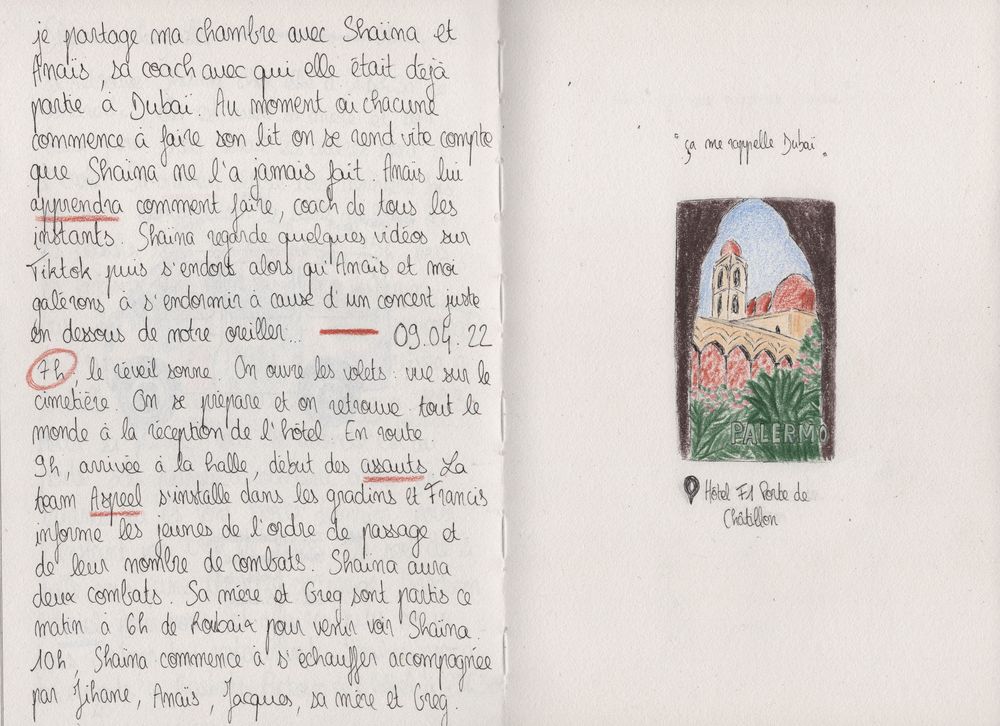 je partage ma chambre avec Shaïna et
Anaïs, sa coach avec qui elle était déjà
partie à Dubaï. Au moment où chacune
commence à faire son lit on se rend vite compte
que Shaïna ne l'a jamais fait. Anaïs lui
apprendra comment faire, coach de tous les
instants. Shaïna regarde quelques vidéos sur
Tiktok puis s'endors alors qu'Anaïs et moi
galérons à s'endormir à cause d'un concert juste
en dessous de notre oreiller... — 09.04.22
7h, le réveil sonne. On ouvre les volets : vue sur le
cimetière. On se prépare et on retrouve tout le
monde à la réception de l'hôtel. En route.
9h, arrivée à la halle, début des assauts. La
team Aspeel s'installe dans les gradins et Francis
informe les jeunes de l'ordre de passage et
de leur nombre de combats. Shaïna aura
deux combats. Sa mère et Greg sont partis ce
matin à 6h de Roubaix pour venir voir Shaïna.
10h, Shaïna commence à s'échauffer accompagnée
par Jihane, Anaïs, Jacques, sa mère et Greg.
"ça me rappelle Dubaï"
PALERMO
Hôtel F1 Porte de
Châtillon